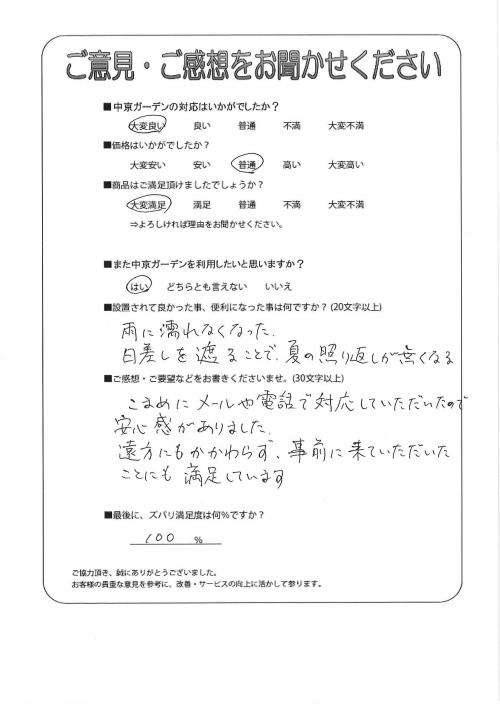 ご意見・ご感想をお聞かせください
■中京ガーデンの対応はいかがでしたか？
大変良い 良い 普通 不満 大変不満
■価格はいかがでしたか？
大変安い 安い 普通 高い 大変高い
■商品はご満足頂けましたでしょうか？
大変満足 満足 普通 不満 大変不満
⇒よろしければ理由をお聞かせください。
■また中京ガーデンを利用したいと思いますか？
はい どちらとも言えない いいえ
■設置されて良かった事、便利になった事は何ですか？(20文字以上)
雨に濡れなくなった。
日差しを遮ることで、夏の照り返しが無くなる
■ご感想・ご要望などをお書きくださいませ。(30文字以上)
こまめにメールや電話で対応していただいたので
安心感がありました。
遠方にもかかわらず、事前に来ていただいた
ことにも満足しています
■最後に、ズバリ満足度は何％ですか？
100 %
ご協力頂き、誠にありがとうございました。
お客様の貴重な意見を参考に、改善・サービスの向上に活かして参ります。